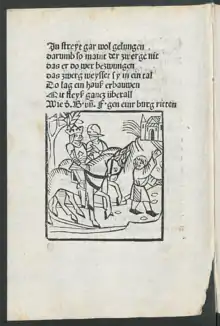 In streyt gar wol gelungen
darumb so matur der zwerge nit
das er do wer bezwungen
das zwerg weyset sy in ein tal
Do lag ein hauß erbauwen
Mit fleyß gancz überall
Wie d. B' vñ F' gen einr burg ritten